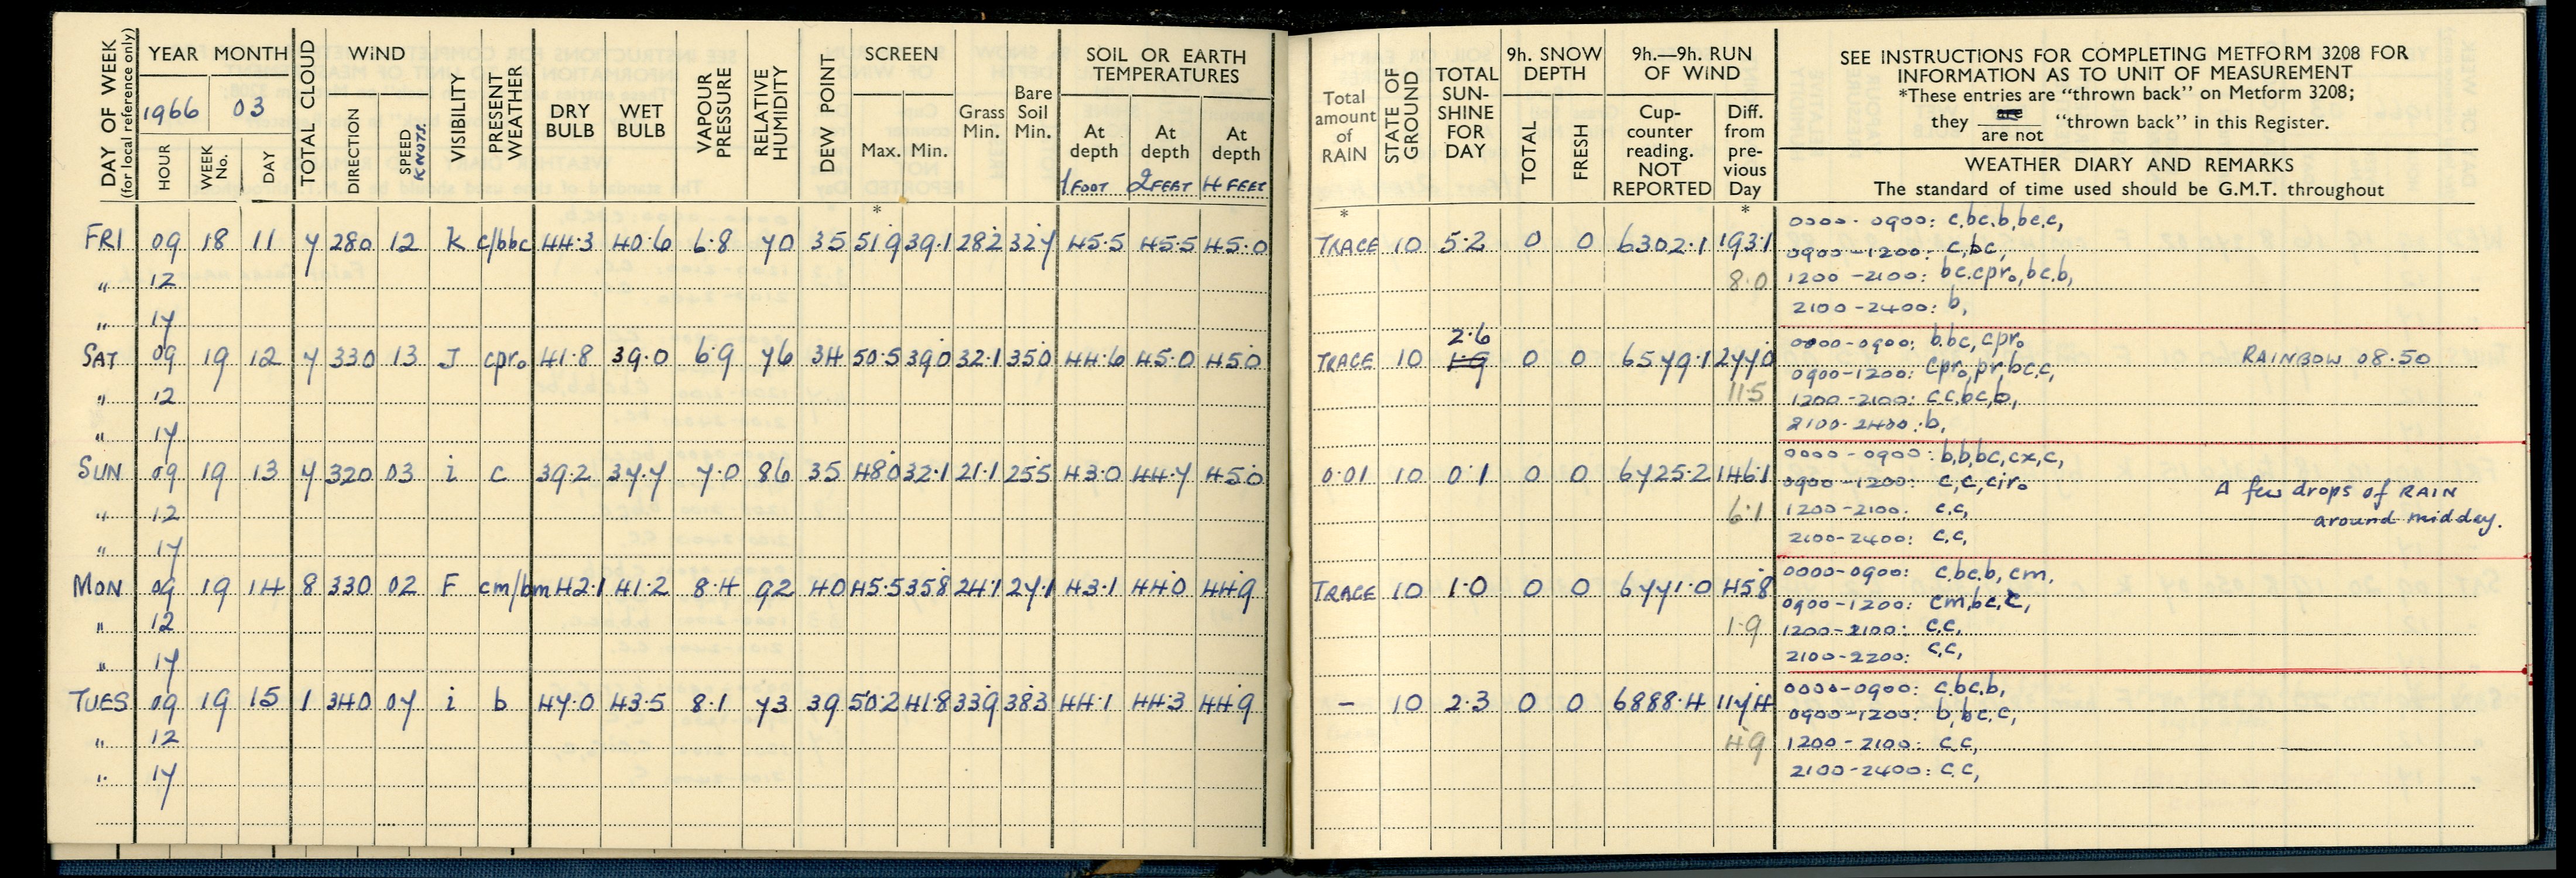 DAY OF WEEK (for local reference only) YEAR MONTH TOTAL CLOUD WiND VISIBILITY PRESENT WEATHER DRY BULB WET BULB VAPOUR PRESSURE RELATIVE HUMIDITY DEW POINT SCREEN Grass Min. Bare Soil Min. SOIL OR EARTH TEMPERATURES
1966 03
HOUR WEEK No. DAY DIRECTION SPEED KNOTS. Max. Min. At depth At depth At depth
1 FOOT 2 FEET 4 FEET
*
FRI 09 18 11 7 280 12 K c/bbc 44.3 40.6 6.8 70 35 51.9 39.1 28.2 32.7 45.5 45.5 45.0
" 12
" 17
SAT 09 19 12 7 330 13 J cpr₀ 41.8 39.0 6.9 76 34 50.5 39.0 32.1 35.0 44.6 45.0 45.0
" 12
" 17
SUN 09 19 13 7 320 03 i c 39.2 37.7 7.0 86 35 48.0 32.1 21.1 25.5 43.0 44.7 45.0
" 12
" 17
MON 09 19 14 8 330 02 F cm/bm 42.1 41.2 8.4 92 40 45.5 35.8 24.1 27.1 43.1 44.0 44.9
" 12
" 17
TUES 09 19 15 1 340 07 i b 47.0 43.5 8.1 73 39 50.2 41.8 33.9 38.3 44.1 44.3 44.9
" 12
" 17
Total amount of RAIN STATE OF GROUND TOTAL SUN-SHINE FOR DAY 9h. SNOW DEPTH 9h.—9h. RUN OF WiND
TOTAL FRESH Cup-counter reading. NOT REPORTED Diff. from pre-vious Day
SEE INSTRUCTIONS FOR COMPLETING METFORM 3208 FOR
INFORMATION AS TO UNIT OF MEASUREMENT
*These entries are "thrown back" on Metform 3208;
they are / are not "thrown back" in this Register.
WEATHER DIARY AND REMARKS
The standard of time used should be G.M.T. throughout
* *
TRACE 10 5.2 0 0 6302.1 193.1 0000-0900: c,bc,b,bc,c,
0900-1200: c,bc,
8.0 1200-2100: bc.cpr₀,bc.b,
2100-2400: b,
2.6
TRACE 10 1.9 0 0 6579.1 277.0 0000-0900: b.bc,cpr₀ RAINBOW 08.50
0900-1200: cpr₀,pr,bc.c,
11.5 1200-2100: c.c,bc,b,
2100-2400: b,
0.01 10 0.1 0 0 6725.2 146.1 0000-0900: b,b,bc,cx,c,
0900-1200: c,c,cir₀ A few drops of RAIN
6.1 1200-2100: c.c, around midday.
2100-2400: c.c,
TRACE 10 1.0 0 0 6771.0 45.8 0000-0900: c,bc.b,cm.
0900-1200: cm,bc,c,
1.9 1200-2100: c.c.
2100-2200: c,c,
- 10 2.3 0 0 6888.4 117.4 0000-0900: c.bc.b,
0900-1200: b,bc.c,
4.9 1200-2100: c c,
2100-2400: c.c,